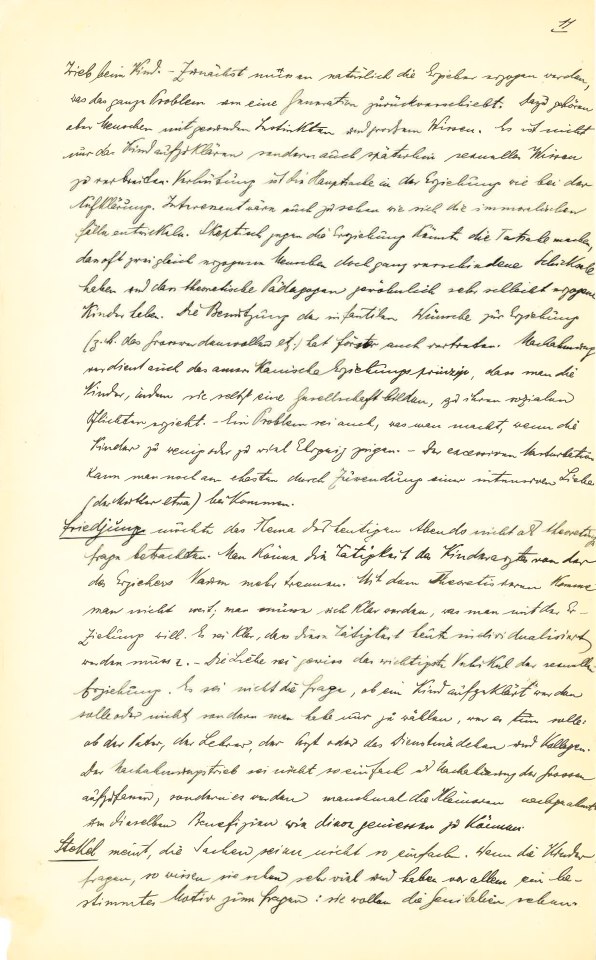 11
Trieb beim Kind. – Zunächst müssen natürlich die Erzieher erzogen werden,
was das ganze Problem um eine Generation zurückverschiebt. Dazu gehören
aber Menschen mit gesunden Instinkten und grossem Wissen. Es ist nicht
nur das Kind aufzuklären sondern auch späterhin sexuelles Wissen
zu verbreiten. Verhütung ist die Hauptsache in der Erziehung wie bei der
Aufklärung. Interessant wäre auch zu sehen wie sich die immoralischen
Fälle entwickeln. Skeptisch gegen die Erziehung könnte die Tatsache machen,
dass oft zwei gleich erzogene Menschen doch ganz verschiedene Schicksale
haben und dass theoretische Pädagogen gewöhnlich sehr schlecht erzogene
Kinder haben. Die Benützung der infantilen Wünsche zur Erziehung
(z.b. des etc.) hat auch vertreten. Nachahmung
verdient auch das amerikanische Erziehungsprinzip, dass man die
Kinder, indem sie selbst eine Gesellschaft bilden, zu ihren sozialen
Pflichten erzieht. – Ein Problem sei auch, was man macht, wenn die
Kinder zu wenig oder zu viel Ehrgeiz zeigen. – Der excessiven Masturbation
kann man noch am ehesten durch Zuwendung einer intensiven Liebe
(der Mutter etwa) beikommen.
Friedjung möchte das Thema des heutigen Abends nicht als theoretische
Frage betrachten. Man könne die Tätigkeit des Kinderarztes von der
des Erziehers kaum mehr trennen. Mit dem Theoretisieren komme
man nicht weit; man müsse sich klar werden, was man mit der Er-
ziehung will. Es sei klar, dass diese Tätigkeit heute individualisiert
werden muss. – Die Liebe sei gewiss das wichtigste Vehikel der sexuellen
Erziehung. Es sei nicht die Frage, ob ein Kind aufgeklärt werden
solle oder nicht, sondern man habe nur zu wählen, wer es tun solle:
ob der Vater, der Lehrer, der Arzt oder das Dienstmädchen und Kollegen.
Der Nachahmungstrieb sei nicht so einfach als Nachahmung der Grossen
aufzufassen, sondern es werden manchmal die Kleineren nachgeahmt
um dieselben Benefizien wie diese geniessen zu können
Stekel meint, die Sachen seien nicht so einfach. Wenn die Kinder
fragen, so wissen sie schon sehr viel und haben vor allem ein be-
stimmtes Motiv zum fragen: sie wollen die Genitalien sehen.